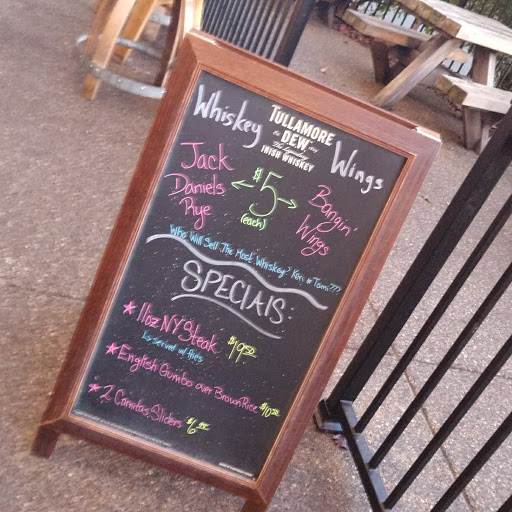 Whiskey
TULLAMORE
D.E.W.
The Legendary
IRISH WHISKEY
Wings
Jack
Daniels
Rye
$5
(each)
Bangin'
Wings
Who Will Sell The Most Whiskey? Kori or Tami???
SPECIALS
★ 11oz NY Steak $19.50
↳ served w/ fries
★ English Gumbo over Brown Rice $10.50
★ 2 Carnitas Sliders $6